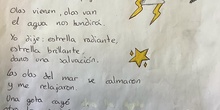 Olas vienen, olas van
el agua nos hundirá.
Yo dije: estrella radiante,
estrella brillante,
danos una salvación.
Las olas del mar se calmaron
y me relajaron
Una gota cayó